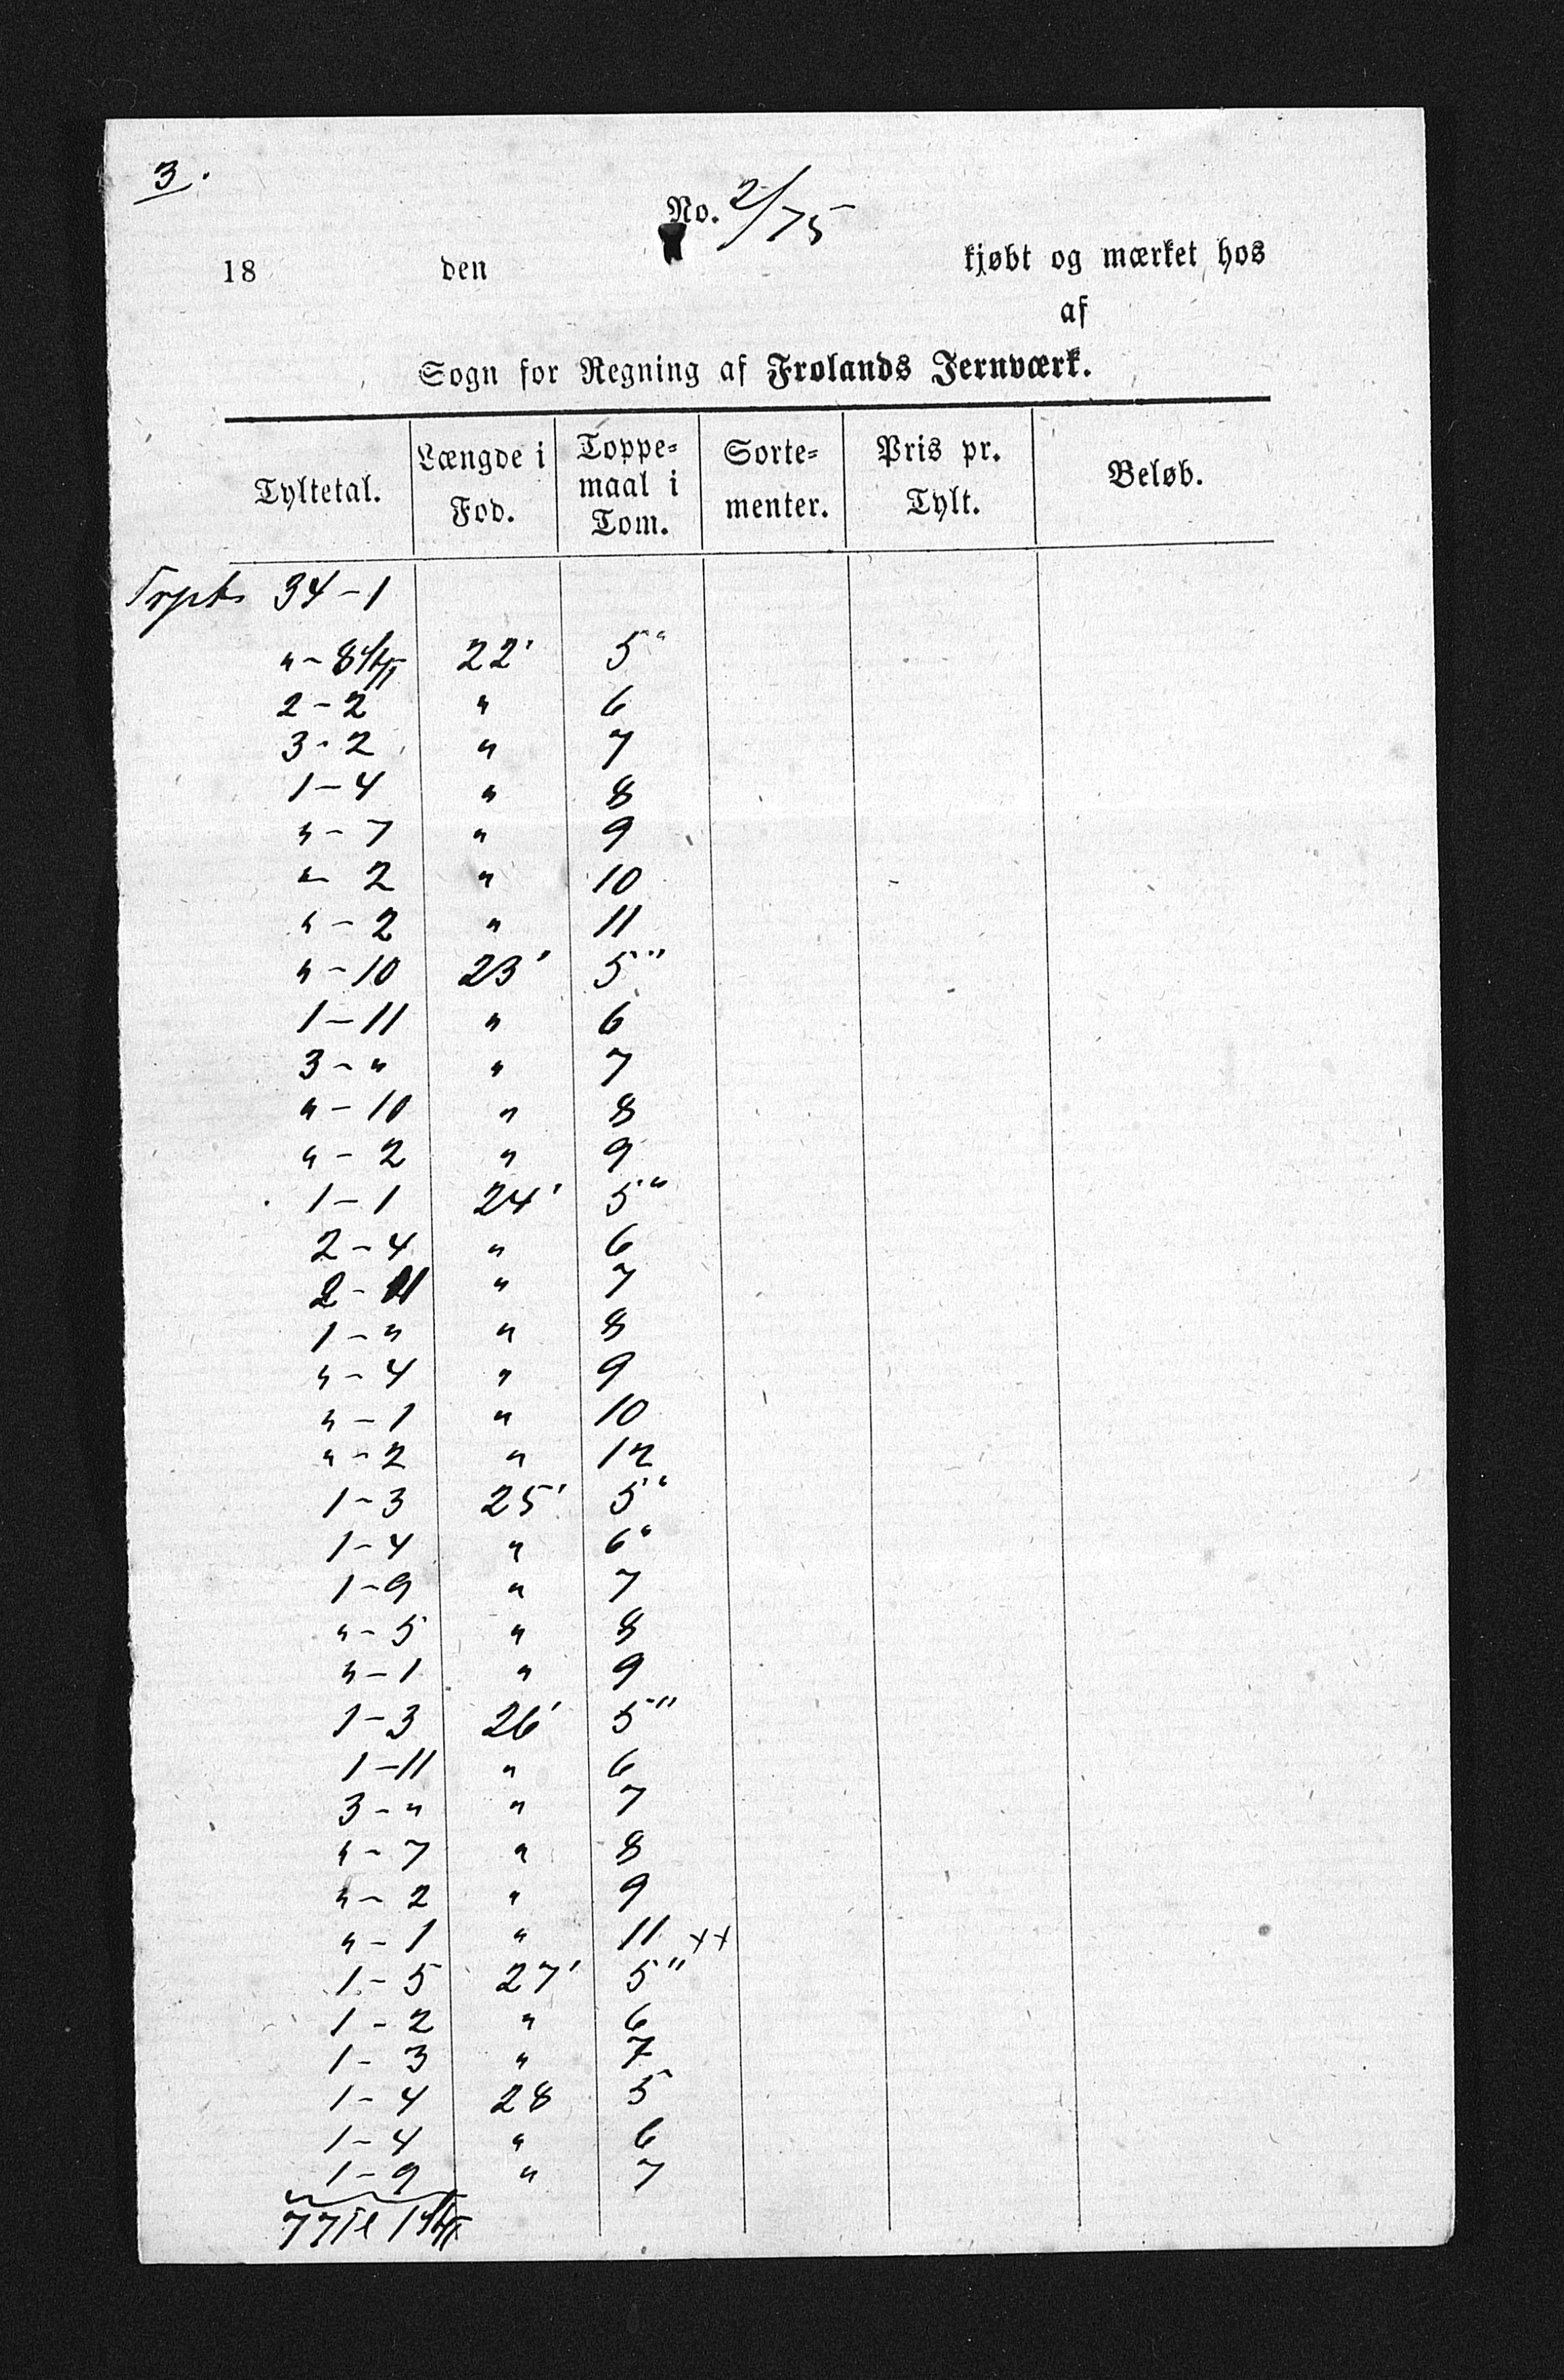 3.
No. 2/75
18 den kjøbt og mærket hos
af
Sogn for Regning af Frolands Jernværk.
Tyltetal. Længde i Fod. Toppe= maal i Tom. Sorte= menter. Pris pr. Tylt. Beløb.
Trpt 34-1
" - 8 st 22' 5"
2-2 " 6
3-2 " 7
1-4 " 8
"-7 " 9
"-2 " 10
"-2 " 11
"-10 23' 5"
1-11 " 6
3-" " 7
"-10 " 8
"-2 " 9
1-1 24' 5"
2-4 " 6
2-11 " 7
1-" " 8
"-4 " 9
"-1 " 10
"-2 " 12
1-3 25' 5"
1-4 " 6"
1-9 " 7
"-5 " 8
"-1 " 9
1-3 26' 5"
1-11 " 6
3-" " 7
"-7 " 8
"-2 " 9
"-1 " 11 ++
1-5 27' 5"
1-2 " 6
1-3 " 7
1-4 28 5
1-4 " 6
1-9 " 7
77 Tl 1 st